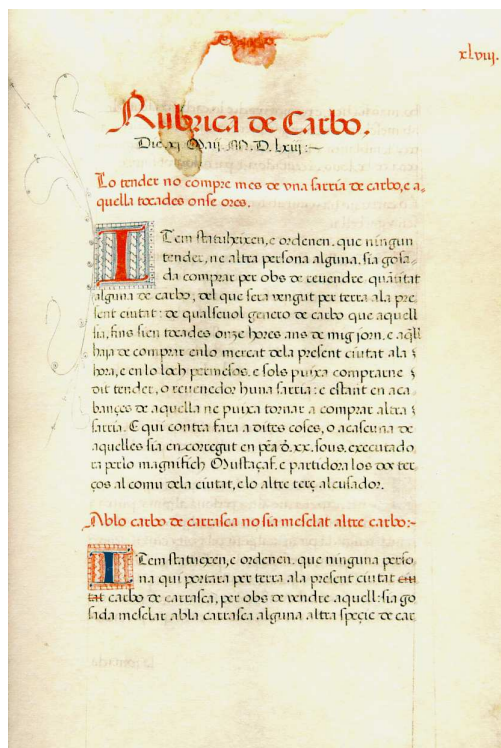 xlviij.
Rubrica de Carbo.
Die xj Maij M. D. lxij :~
Lo tender no compre mes de vna sarria de carbo, e a,
quella tocades onse ores.
ITem statuheixen, e ordenen, que ningun
tender, ne altra persona alguna, sia gosa,
da comprar per obs de reuendre quātitat
alguna de carbo, del que sera vengut per terra ala pre
sent ciutat: de qualseuol genero de carbo que aquell
sia, fins sien tocades onze hores ans de mig jorn, e aq̄ll
haja de comprar enlo mercat dela present ciutat ala
hora, e en lo loch permesos, e sols puixa comprarne
dit tender, o reuenedor huna sarria: e estant en aca
bançes de aquella ne puixa tornar a comprar altra
sarria. E qui contra fara a dites coses, o acascuna de
aquelles sia en corregut en pēa d. xx. sous, executado
ra perlo magnifich Mustaçaf, e partidora los dos ter
ços al comu dela ciutat, e lo altre terç al cusador.
Ablo carbo de carrasca no sia mesclat altre carbo:~
ITem statuexen, e ordenen, que ninguna perso
na qui portara per terra ala present ciutat ciu
tat carbo de carrasca, per obs de vendre aquell: sia go
sada mesclar abla carrasca alguna altra speçie de car